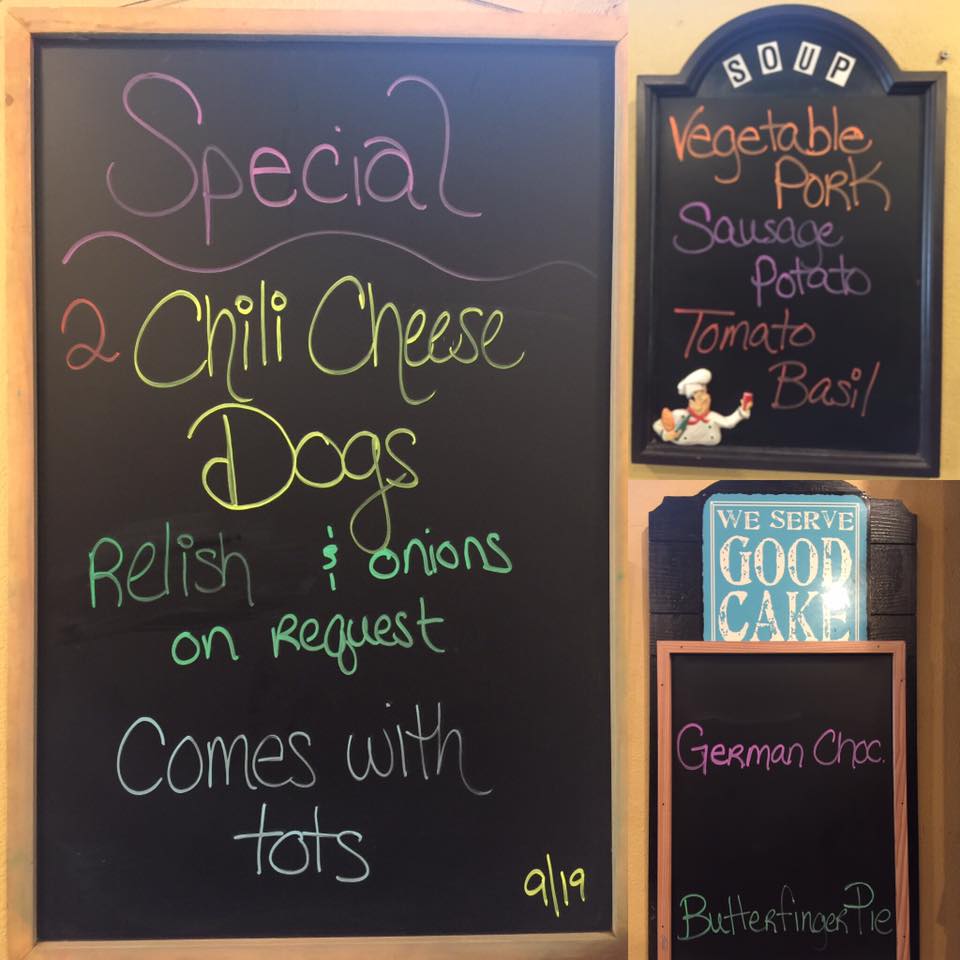 Special
2 Chili Cheese
Dogs
Relish & onions
on Request
Comes with
tots
9/19
SOUP
Vegetable
Pork
Sausage
Potato
Tomato
Basil
WE SERVE
GOOD
CAKE
German Choc.
Butterfinger Pie